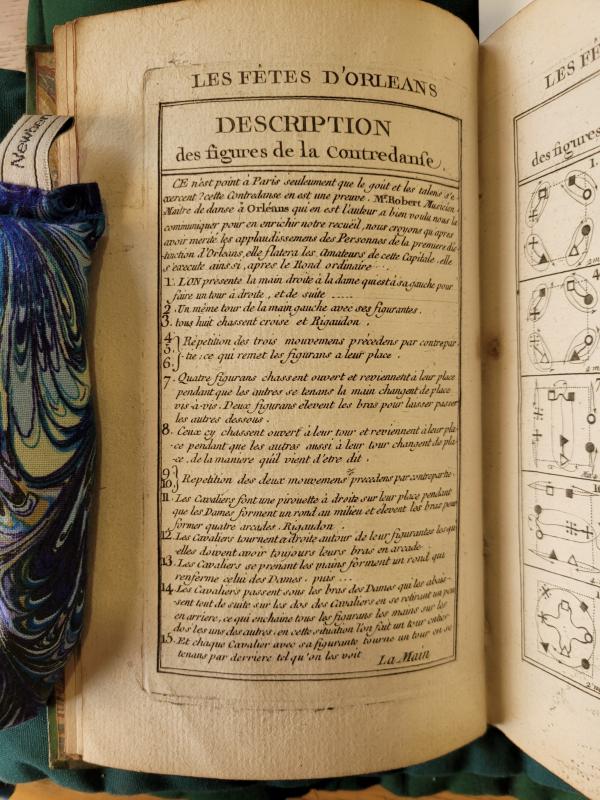 Newber
LES FÊTES D'ORLEANS
DESCRIPTION
des figures de la Contredanse.
CE n'est point à Paris seuleument que le goût et les talens s'e-
xercent? cette Contredanse en est une preuve. Mr. Robert Musicien
Maitre de danse à Orléans qui en est l'auteur a bien voulu nous la
communiquer pour en enrichir notre recueil, nous croyons qu'apres
avoir merité les applaudissemens des Personnes de la premiere dis-
tinction d'Orleans, elle flatera les Amateurs de cette Capitale. elle
s'execute ainsi, après le Rond ordinaire...
1. L'ON presente la main droite à la dame qui est à sa gauche pour
faire un tour à droite, et de suite .....
2. Un même tour de la main gauche avec ses figurantes.
3. tous huit chassent croisé et Rigaudon.
4. } Répetition des trois mouvemens précedens par contrepar-
5. } -tie: ce qui remet les figurans a leur place.
6. }
7. Quatre figurans chassent ouvert et reviennent à leur place
pendant que les autres se tenans la main changent de place
vis-à-vis. Deux figurans élevent les bras pour laisser passer
les autres dessous.
8. Ceux cy chassent ouvert à leur tour et reviennent à leur pla-
-ce pendant que les autres aussi à leur tour changent de pla-
-ce, de la maniere qu'il vient d'etre dit.
9. } Repetition des deux mouvemens precedens par contrepartie.
10. }
11. Les Cavaliers font une pirouette à droite sur leur place pendant
que les Dames forment un rond au milieu et elevent les bras pour
former quatre arcades. Rigaudon.
12. Les Cavaliers tournent a droite autour de leur figurantes lesqu-
-elles doivent avoir toujours leurs bras en arcade
13. Les Cavaliers se prenant les mains forment un rond qui
renferme celui des Dames. puis ...
14. Les Cavaliers passent sous les bras des Dames qui les abais-
-sent tout de suite sur les dos des Cavaliers en se retirant un peu
en arriere, ce qui enchaine tous les figurans les mains sur les
dos les uns des autres, en cette situation l'on fait un tour entier
15. Et chaque Cavalier avec sa figurante tourne un tour en se
tenans par derriere tel qu'on les voit
La Main
LES FÊ
des figures
1.
4
7
10
2m